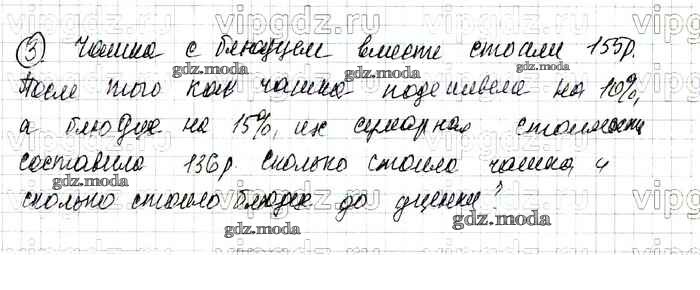 vipgdz.ru vipgdz.ru vipgdz.ru
③ Чашка с блюдцем вместе стоили 155р.
gdz.moda gdz.moda gdz.moda
После того как чашка подешевела на 10%,
vipgdz.ru vipgdz.ru vipgdz.ru
а блюдце на 15%, их суммарная стоимость
составила 136р. Сколько стоила чашка и
gdz.moda
сколько стоило блюдце до уценки?
vipgdz.ru vipgdz.ru vipgdz.ru
gdz.moda gdz.moda